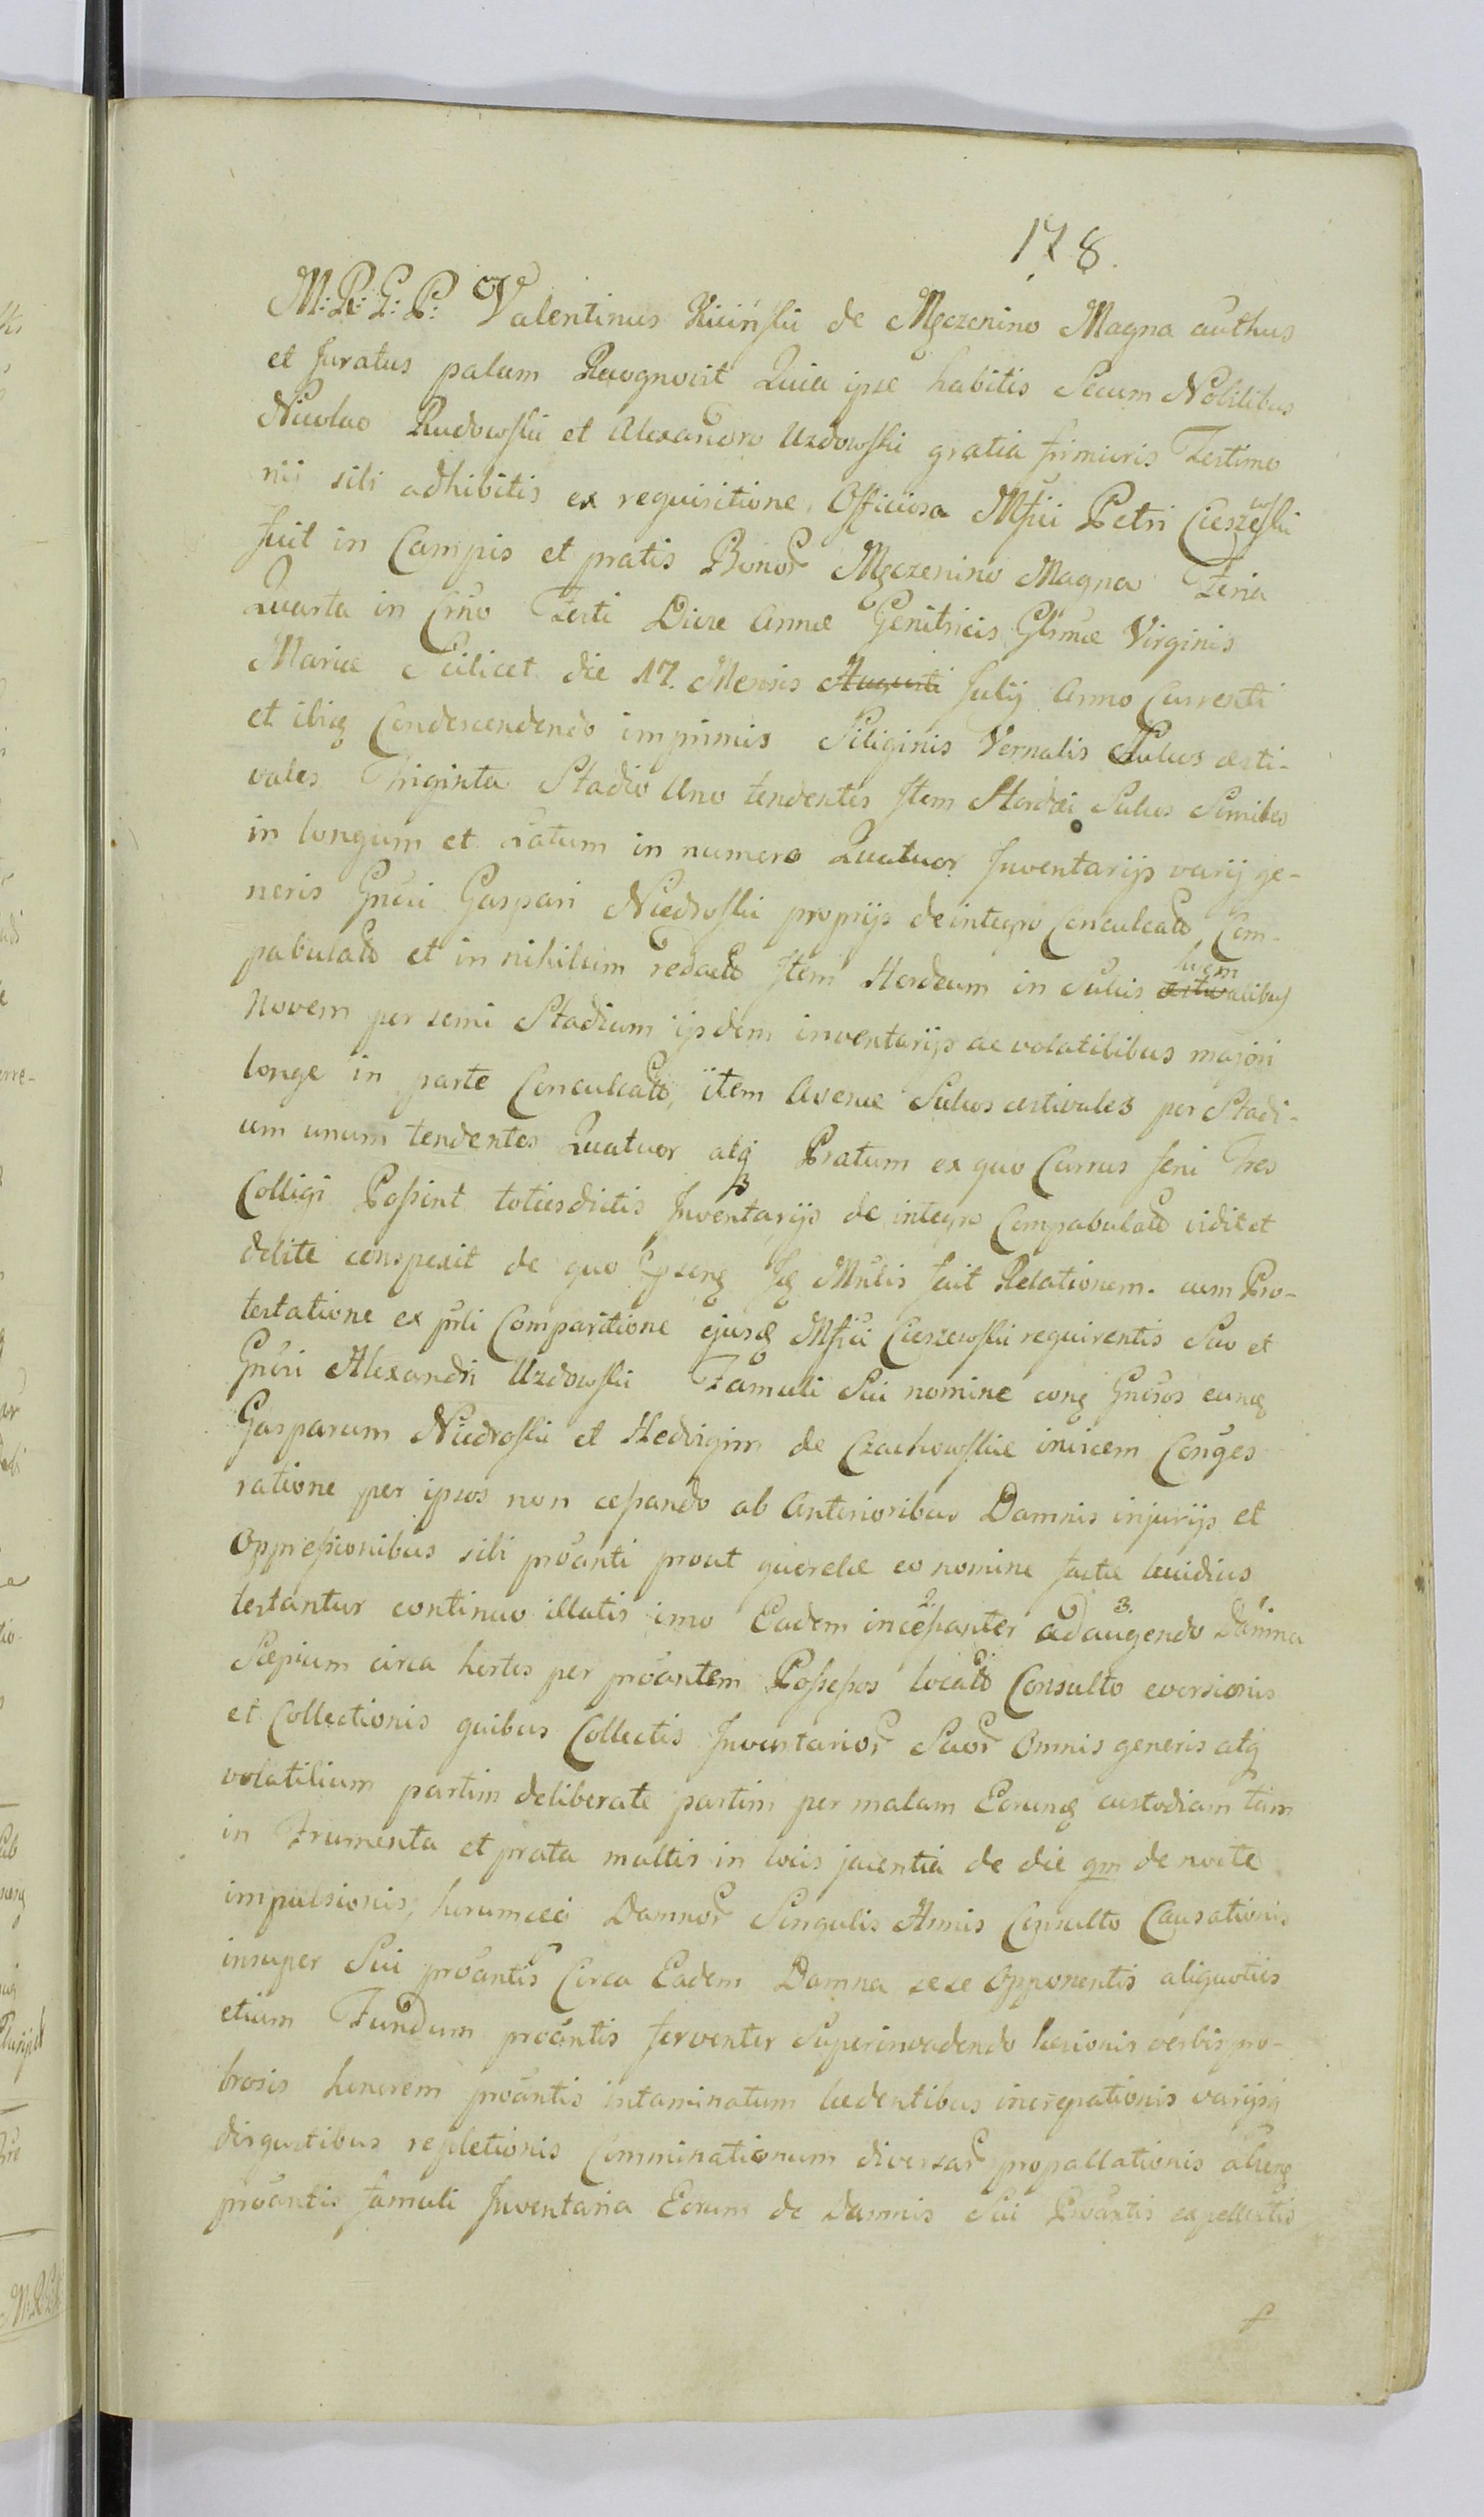 178.
M: R: G: P: Valentinus Kiciński de Męczenino Magna authus
et Juratus palam Recognovit Quia ipse habitis Secum Nobilibus
Nicolao Rudowski et Alexandro Uzdowski gratia firmioris Testimo
nii sibi adhibitis ex requisitione Officiosa Mfici Petri Cieszewski
fuit in Campis et pratis Bonor Męczenino Magna Feria
Quarta in Crno Festi Divæ Annæ Genitricis Glsmæ Virginis
Mariæ Scilicet die 17. Mensis Augusti Julij Anno Currenti
et ibiq Condescendendo imprimis Siliginis Vernalis Sulcos æsti-
vales Thriginta Stadio Uno tendentes Item Hordei Sulcos Similes
in longum et Latum in numero Quatuor Inventarijs varij ge-
neris Gnsi Gaspari Niedroski proprijs de integro Conculcato Com-
pabulato et in nihilum redacto Item Hordeum in Sulcis æstivalibus hyem
Novem per semi Stadium ijsdem inventarijs ac volatilibus majori
longe in parte Conculcato, item Avenæ Sulcos æstivales per Stadi-
um unum tendentes Quatuor atq Pratum ex quo Currus feni Tres
Colligi Possint totiesdictis Inventarijs de integro Compabulato vidit et
debite conspexit de quo Ipseq Jq Mnlis fait Relationem. cum Pro-
testatione ex prli Comparitione ejusq Mfici Cieszewski requirentis Suo et
Gnsi Alexandri Uzdowski Famuli Sui nomine conq Gnsos eunq
Gasparum Niedroski et Hedvigim de Czachowskie invicem Conges
ratione per ipsos non cessando ab Anterioribus Damnis injurijs et
Oppressionibus sibi proanti prout querelæ eo nomine factæ lucidius
testantur continuo illatis imo Eadem incessanter 2. adaugendo 3. Damna 1.
Sæpium circa hortos per proantem Possessos locato Consulto eversionis
et Collectionis quibus Collectis Inventarior Suor Omnis generis atq
volatilium partim deliberate partim per malam Eorumq custodiam tam
in Frumenta et prata multis in locis jacentia de die qm de nocte
impulsionis, horumce Damnor Singulis Annis Consulto Causationis
insuper Sui proantis Circa Eadem Damna sese Opponentis aliquoties
etiam Fundum proantis ferventer Superinvadendo læsionis verbis pro-
brosis honorem proantis intaminatum lædentibus increpationis varijsq
disgustibus repletionis Comminationum diversar propallationis
proantis famuli Inventaria Eorum de Damnis Sui Proantis expellentis